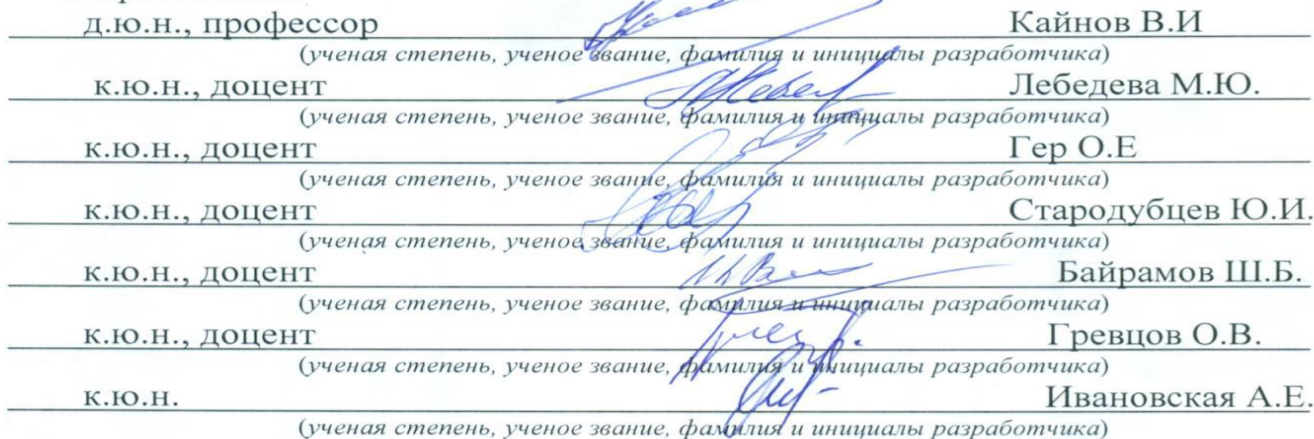 д.ю.н., профессор Кайнов В.И
(ученая степень, ученое звание, фамилия и инициалы разработчика)
к.ю.н., доцент Лебедева М.Ю.
(ученая степень, ученое звание, фамилия и инициалы разработчика)
к.ю.н., доцент Гер О.Е
(ученая степень, ученое звание, фамилия и инициалы разработчика)
к.ю.н., доцент Стародубцев Ю.И.
(ученая степень, ученое звание, фамилия и инициалы разработчика)
к.ю.н., доцент Байрамов Ш.Б.
(ученая степень, ученое звание, фамилия и инициалы разработчика)
к.ю.н., доцент Гревцов О.В.
(ученая степень, ученое звание, фамилия и инициалы разработчика)
к.ю.н. Ивановская А.Е.
(ученая степень, ученое звание, фамилия и инициалы разработчика)